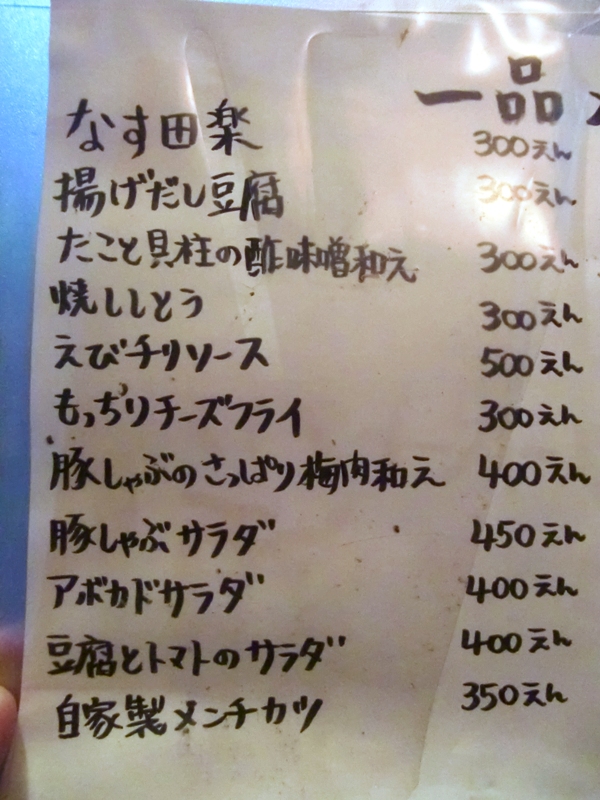 一品
なす田楽 300えん
揚げだし豆腐 300えん
たこと貝柱の酢味噌和え 300えん
焼ししとう 300えん
えびチリソース 500えん
もっちりチーズフライ 300えん
豚しゃぶのさっぱり梅肉和え 400えん
豚しゃぶサラダ 450えん
アボカドサラダ 400えん
豆腐とトマトのサラダ 400えん
自家製メンチカツ 350えん